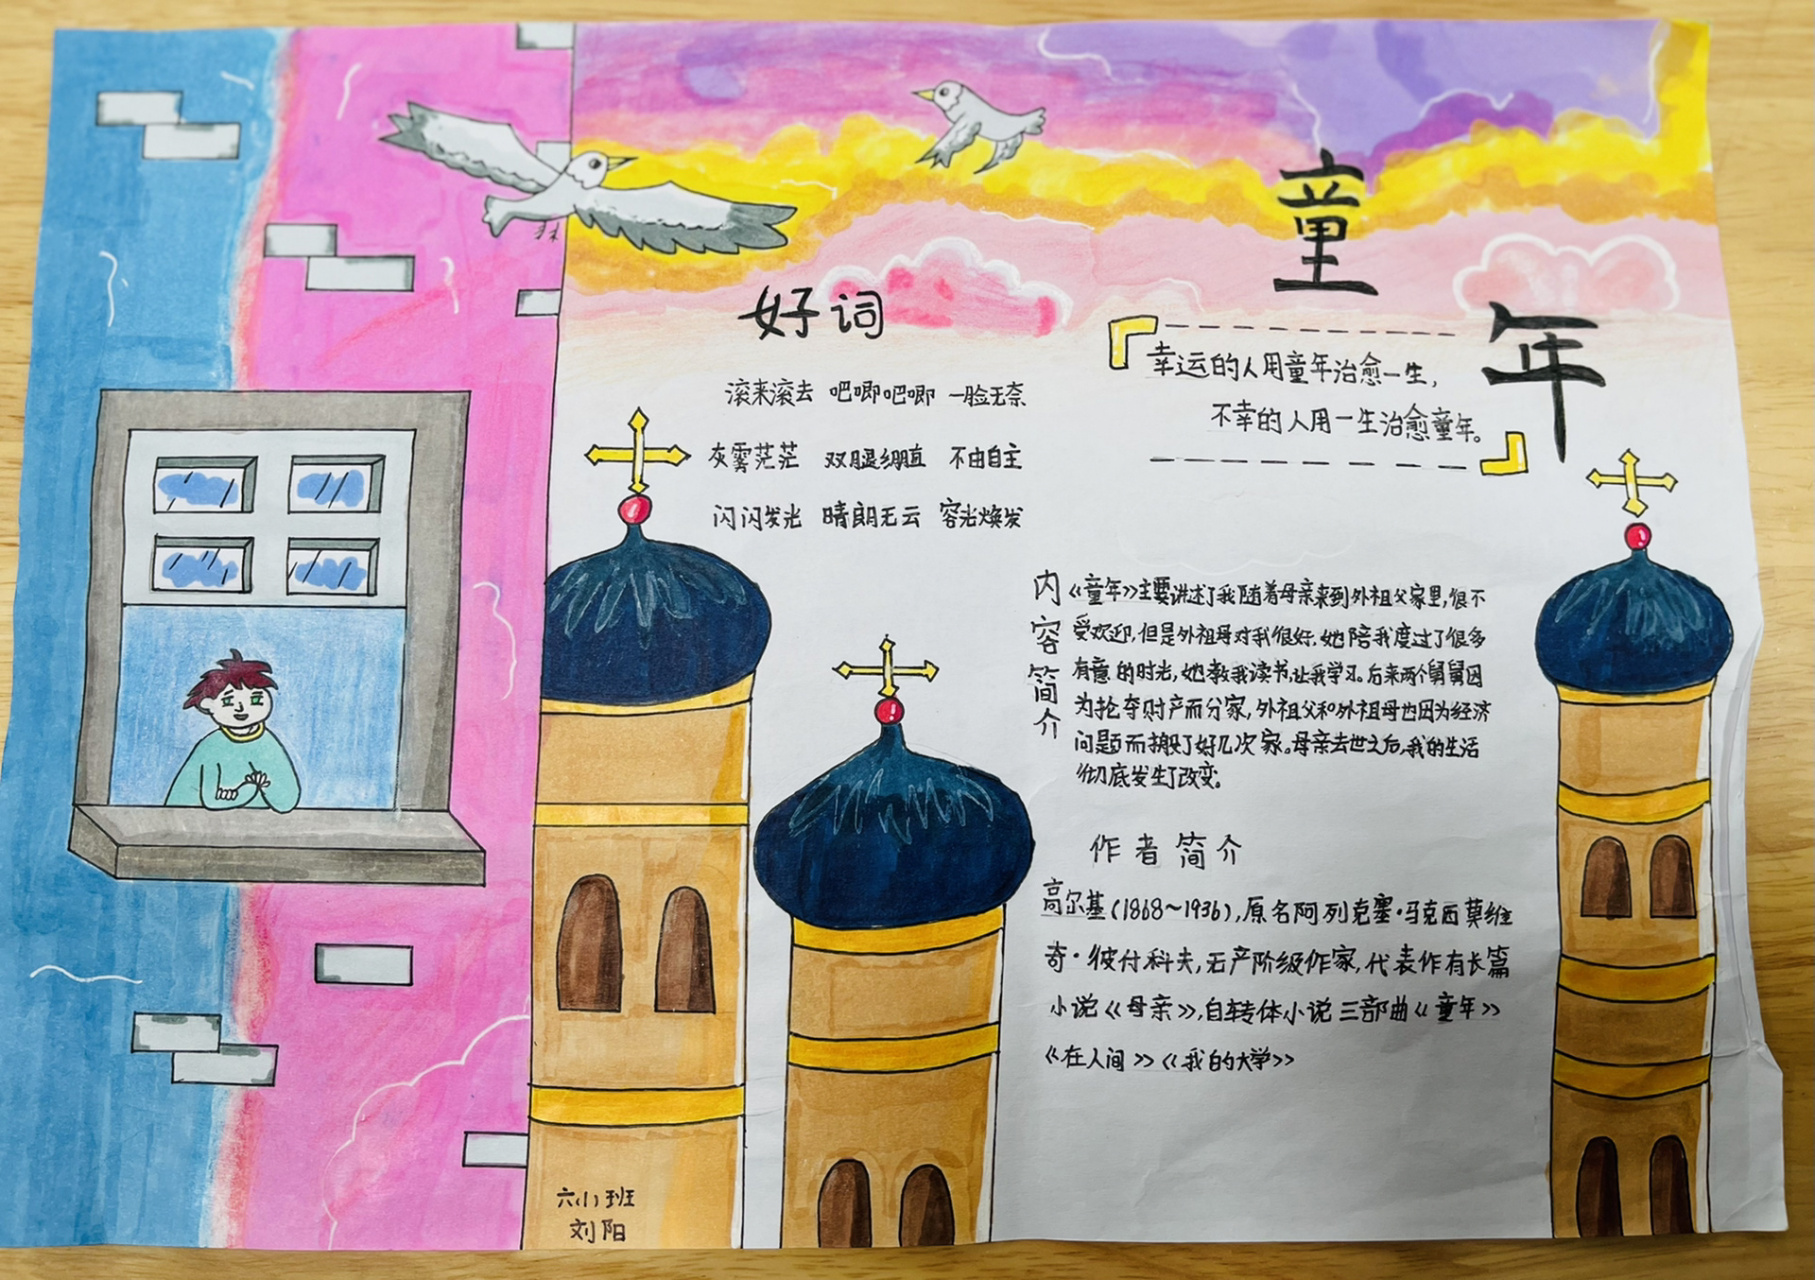 童年
好词
滚来滚去 吧唧吧唧 一脸无奈
灰雾茫茫 双腿绷直 不由自主
闪闪发光 晴朗无云 容光焕发
幸运的人用童年治愈一生,
不幸的人用一生治愈童年。
内容简介
《童年》主要讲述了我随着母亲来到外祖父家里,很不
受欢迎,但是外祖母对我很好,她陪我度过了很多
有意的时光,她教我读书,让我学习。后来两个舅舅因
为抢夺财产而分家,外祖父和外祖母也因为经济
问题而搬了好几次家。母亲去世之后,我的生活
彻底发生了改变。
作者简介
高尔基(1868~1936),原名阿列克塞·马克西莫维
奇·彼什科夫,无产阶级作家,代表作有长篇
小说《母亲》,自转体小说三部曲《童年》
《在人间》《我的大学》
六(1)班
刘阳